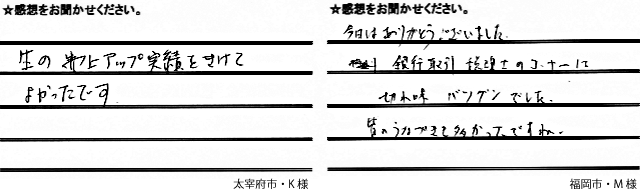 ★感想をお聞かせください。
生の売上アップ実績をきけて
よかったです
太宰府市・K様
★感想をお聞かせください。
今日はありがとうございました。
銀行取引 税理士のコーナーに
切れ味 バツグンでした。
皆のうなづきも多かったですね。
福岡市・M様